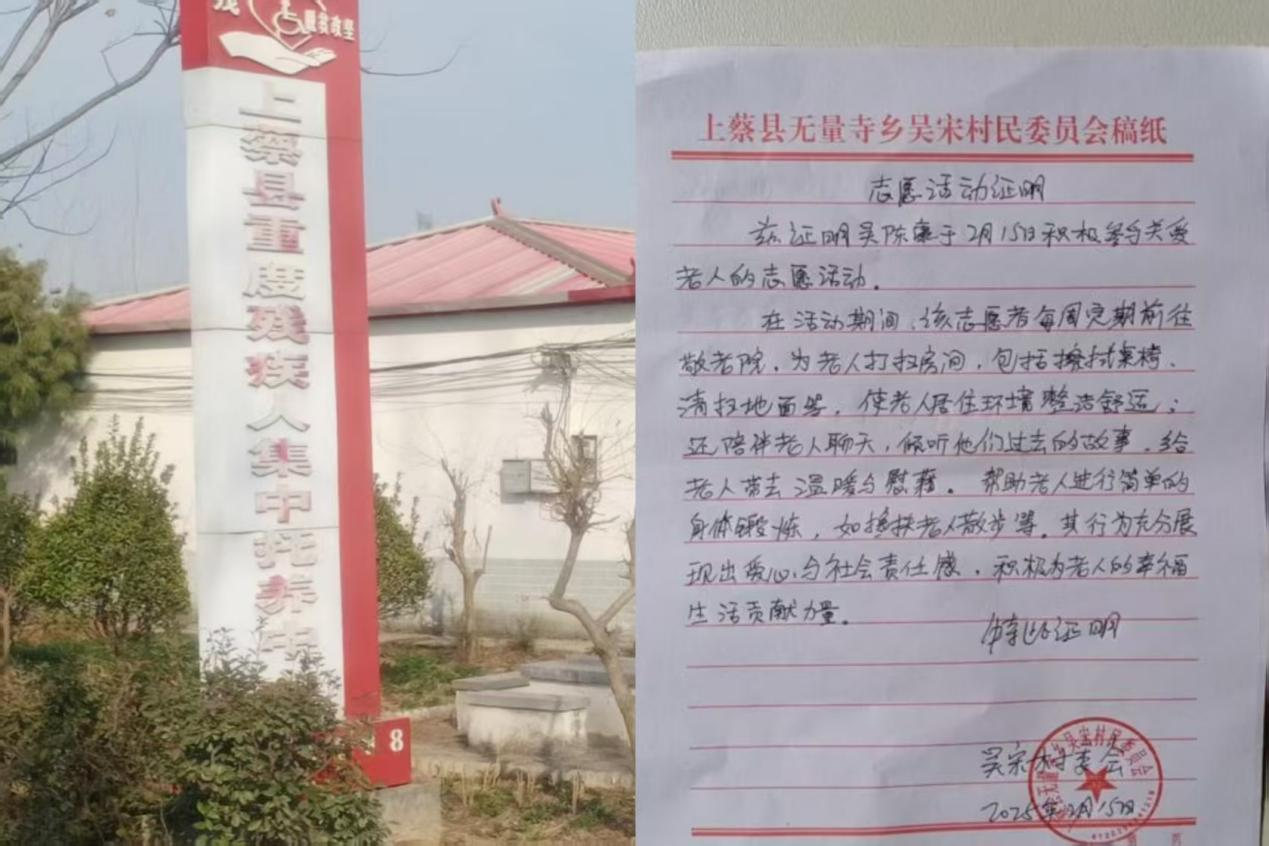 残
脱贫攻坚
上蔡县重度残疾人集中托养中
8
上蔡县无量寺乡吴宋村民委员会稿纸
志愿活动证明
兹证明吴陈豪于2月15日积极参与关爱
老人的志愿活动。
在活动期间,该志愿者每周定期前往
敬老院,为老人打扫房间,包括擦拭桌椅、
清扫地面等,使老人居住环境整洁舒适;
还陪伴老人聊天,倾听他们过去的故事,给
老人带去温暖与慰藉。帮助老人进行简单的
身体锻炼,如搀扶老人散步等。其行为充分展
现出爱心与社会责任感,积极为老人的幸福
生活贡献力量。
特此证明
吴宋村委会
2025年2月15日